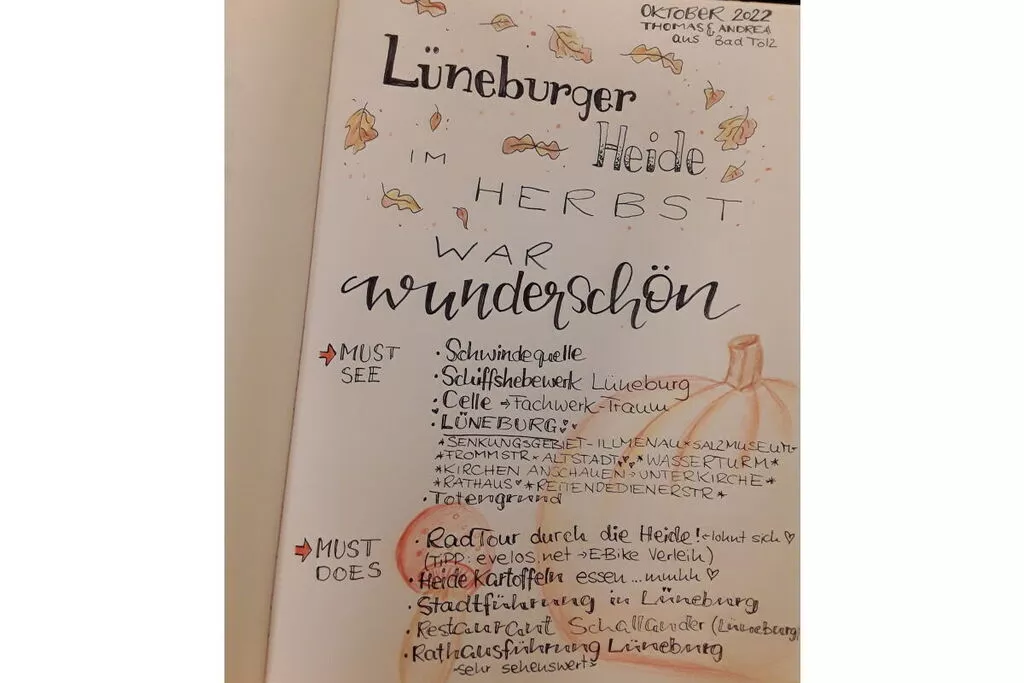 OKTOBER 2022
THOMAS & ANDREA
aus Bad Tölz
Lüneburger
Heide
IM
HERBST
WAR
wunderschön
➔ MUST
SEE
· Schwindequelle
· Schiffshebewerk Lüneburg
· Celle → Fachwerk-Traum
· LÜNEBURG ♥♥
*SENKUNGSGEBIET-ILLMENAU*SALZMUSEUM*
*FROMMSTR*ALTSTADT♥♥*WASSERTURM*
*KIRCHEN ANSCHAUEN→UNTERKIRCHE*
*RATHAUS♥*REITENDEDIENERSTR*
· Totengrund
➔ MUST
DOES
· RadTour durch die Heide! - lohnt sich ♡
(TIPP: evelos.net → E-Bike Verleih)
· Heide Kartoffeln essen ... mmhh ♡
· Stadtführung in Lüneburg
· Restaurant Schallander (Lüneburg)
· Rathausführung Lüneburg
-sehr sehenswert-